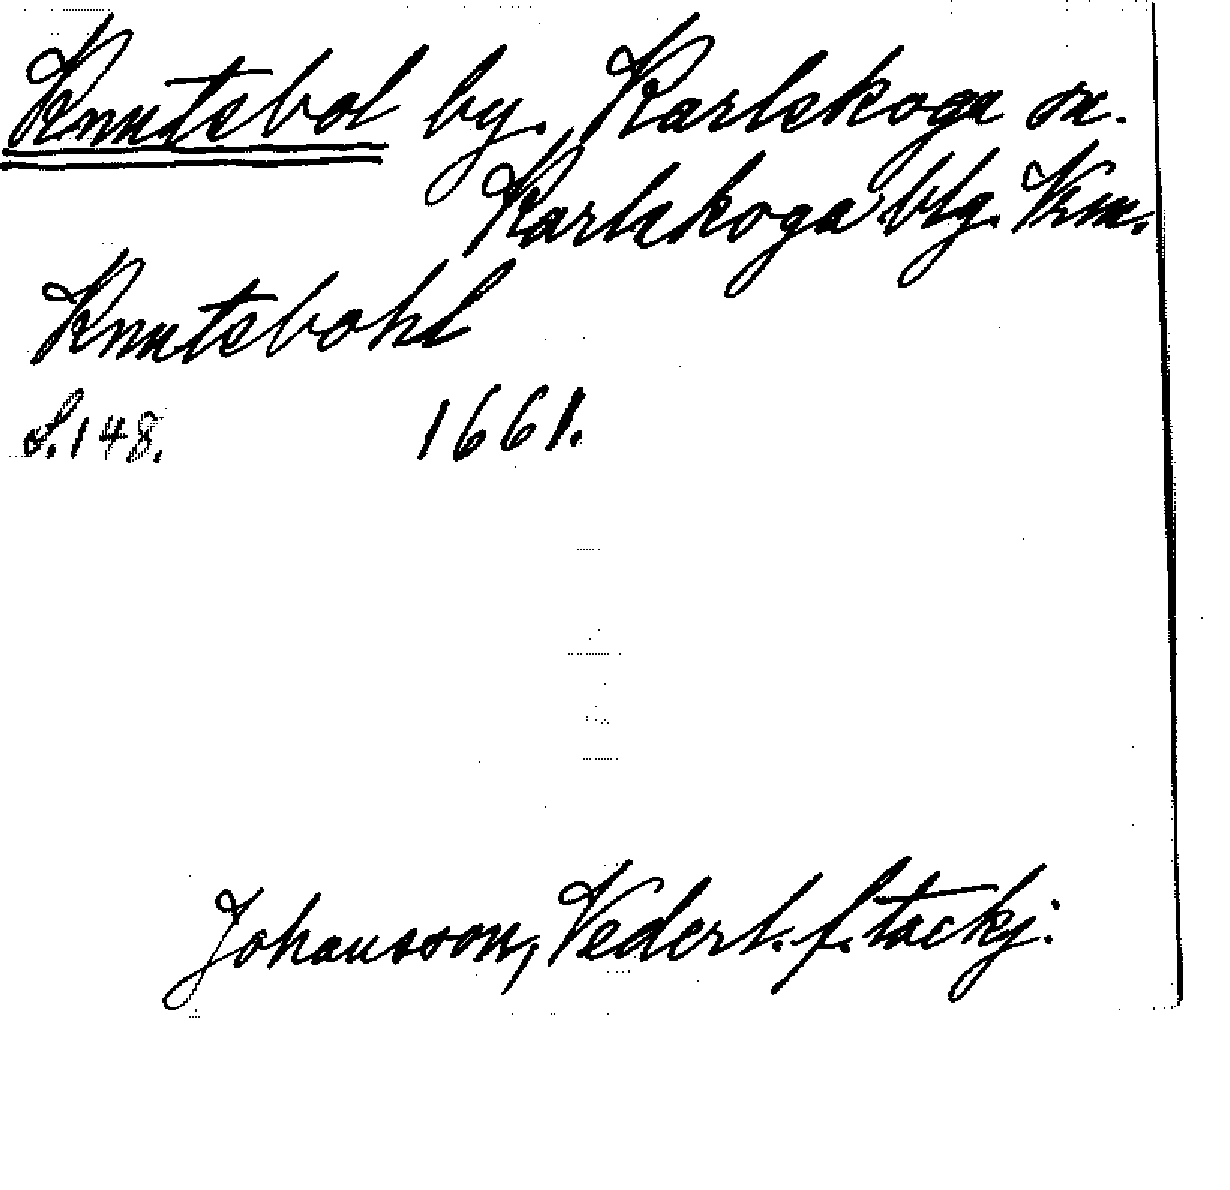 Knutsbol by. Karlskoga sn.
Karlskoga blg. Vrm.
Knutsbohl
S. 148. 1661.
Johansson, Vederl. f. tackj.